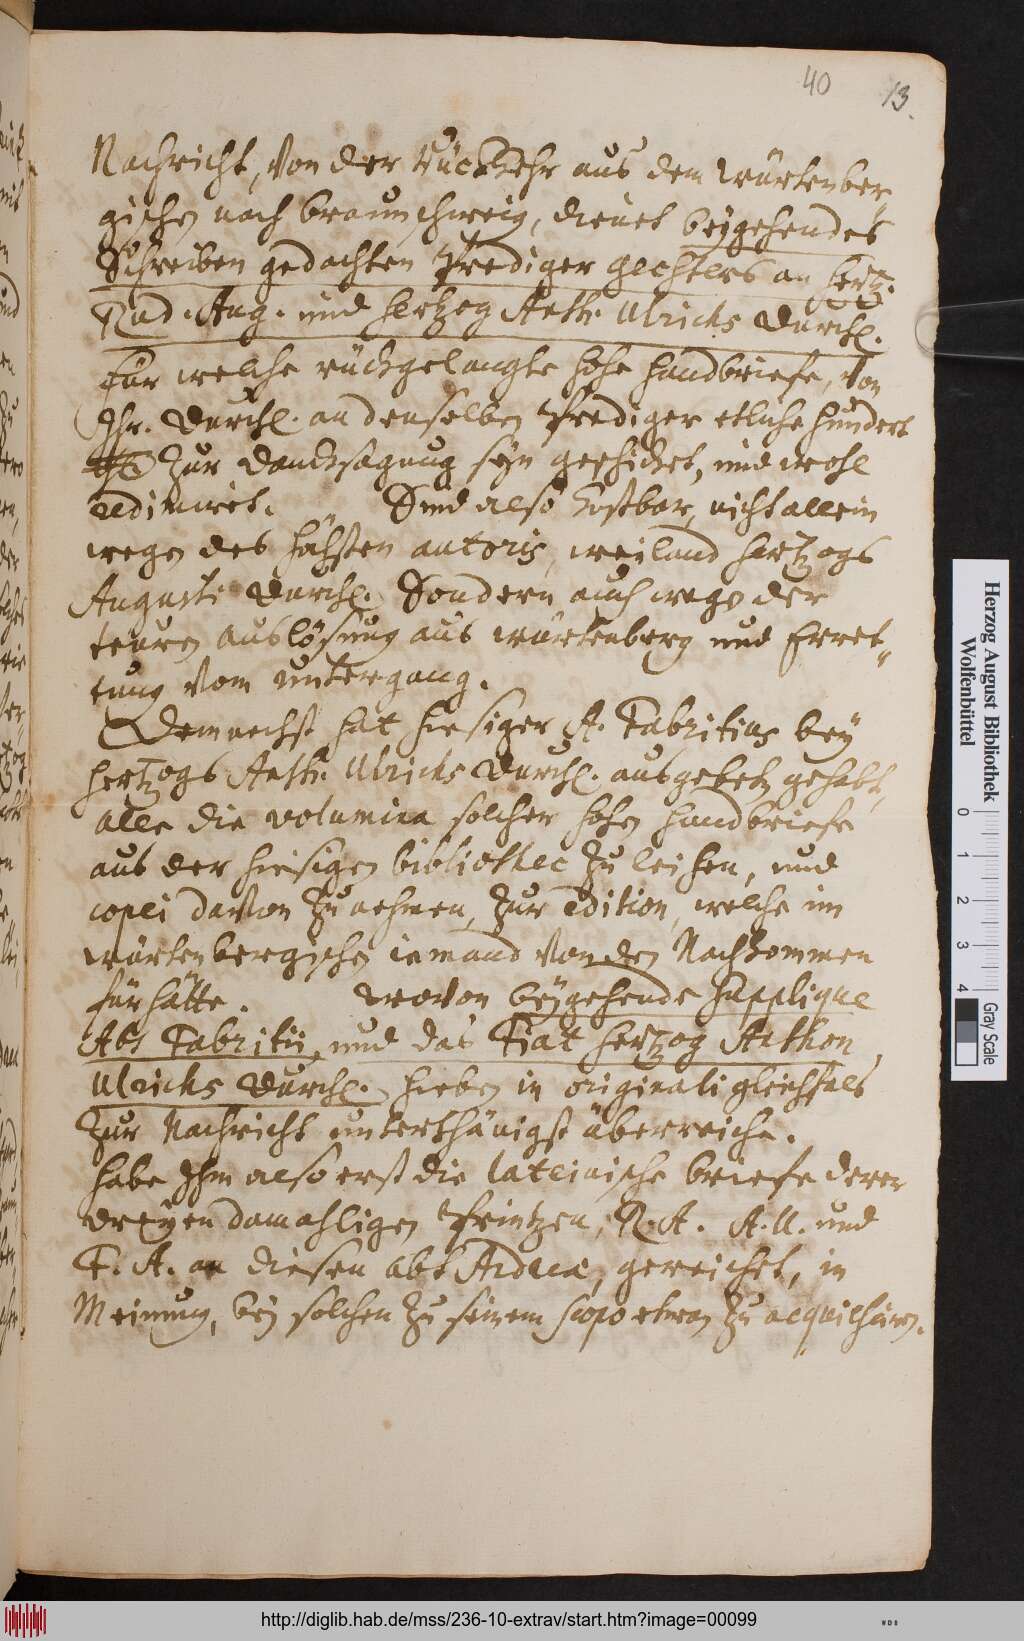 40 13.
Nachricht, von der Rückkehr aus dem Würtenber
gischen nach Braunschweig, dienet beygehendes
Schreiben gedachten Prediger Gechters an Hertz.
Rud. Aug. und Hertzog Anth. Ulrichs Durchl.
Für welche rückgelangte hohe Handbriefe, von
Ihr. Durchl. an denselben Prediger etliche hundert
zur Dancksagung seyn geschicket, und wohl
Sind also kostbar, nicht allein
wegen des höchsten autoris, weiland Hertzogs
Augusti Durchl. Sondern auch wegen der
teuren Auslösung aus Würtenberg und Erret„
tung vom Untergang.
Demnechst hat hiesiger A. Fabritius bey
Hertzogs Anth. Ulrichs Durchl. ausgebeten gehabt,
alle die volumina solcher hohen Handbriefe
aus der hiesigen bibliothec zu leihen, und
copei davon zu nehmen, zur edition, welche im
Würtenbergischen iemand von den Nachkommen
fürhätte. Wovon beygehende Supplique
Abt Fabritii, und das Fiat Hertzog Anthon
Ulrichs Durchl. hieben in originali gleichfals
zur Nachricht unterthänigst überreiche.
Habe Ihm also erst die lateinische Briefe derer
dreyen damahligen Printzen, R. A. A. U. und
F. A. an diesen Abt Andreæ, gereichet, in
Meinung, bey solchen zu seinem scopo etwan zu acquiesciren.
Herzog August Bibliothek
Wolfenbüttel
0 1 2 3 4
Gray Scale
http://diglib.hab.de/mss/236-10-extrav/start.htm?image=00099